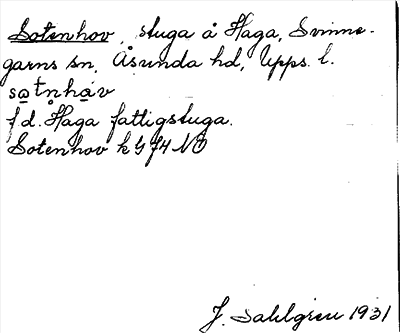 Sotenhov, stuga å Haga, Svinne-
garns sn, Åsunda hd, Upps. l.
so̲tn̥ha̲v
f d. Haga fattigstuga.
Sotenhov k G J4 NO
J. Sahlgren 1931